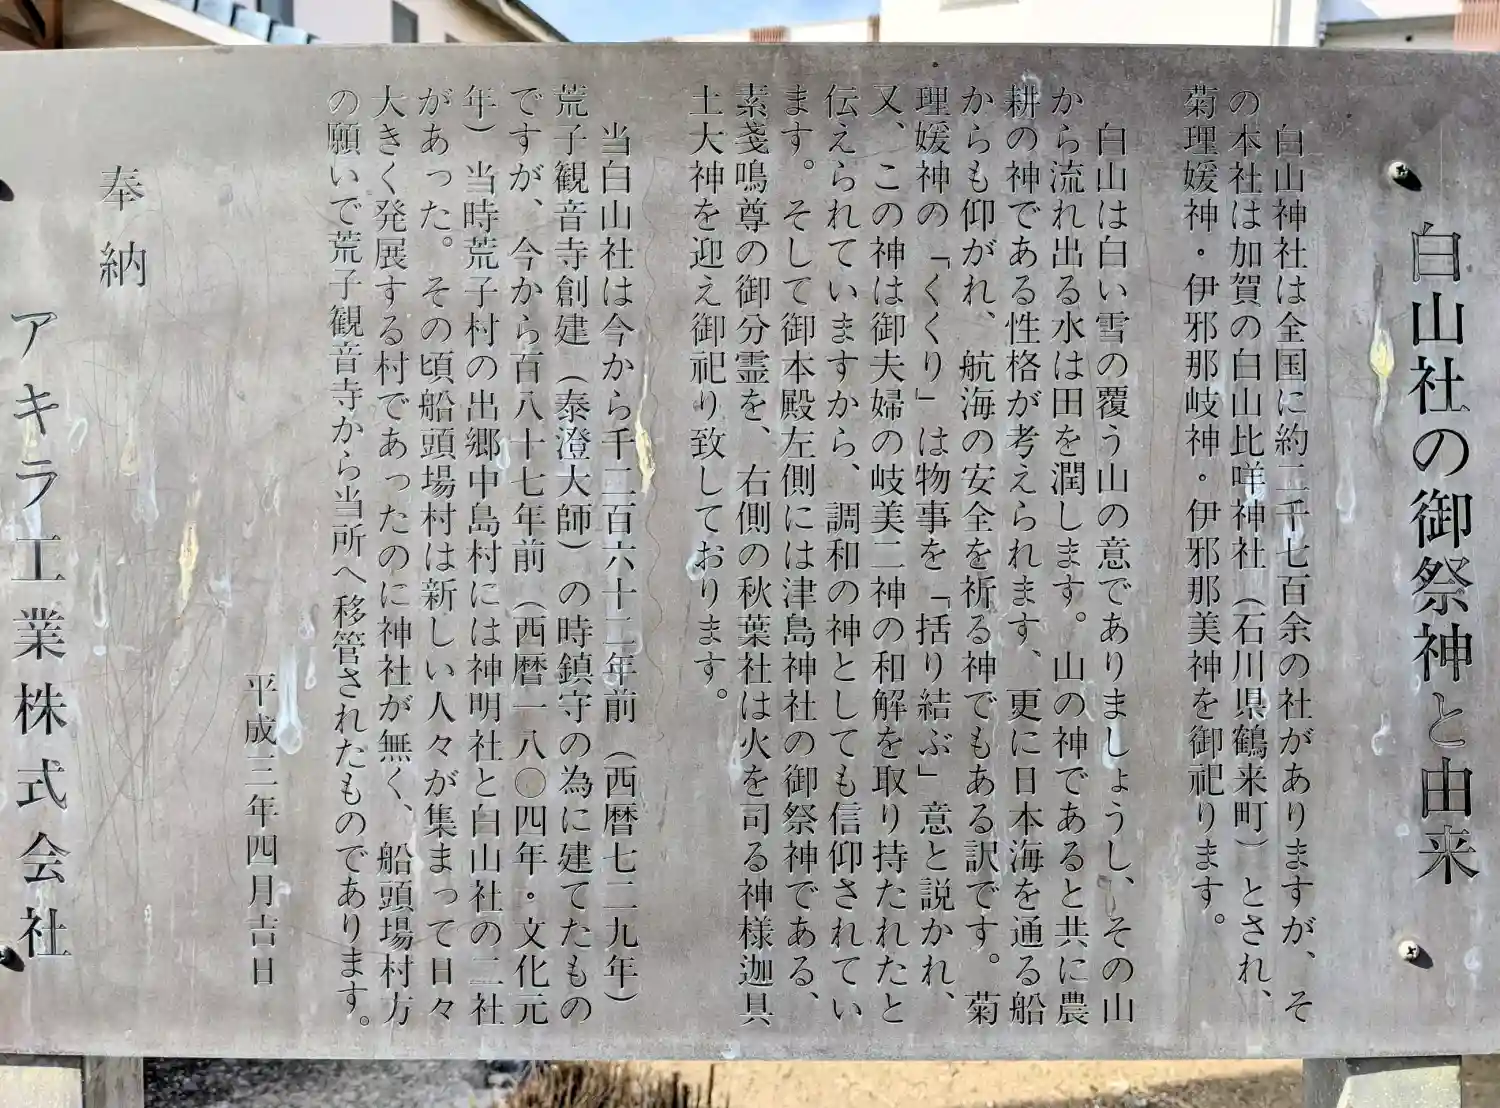 白山社の御祭神と由来
白山神社は全国に約二千七百余の社がありますが、そ
の本社は加賀の白山比咩神社（石川県鶴来町）とされ、
菊理媛神・伊邪那岐神・伊邪那美神を御祀ります。
白山は白い雪の覆う山の意でありましょうし、その山
から流れ出る水は田を潤します。山の神であると共に農
耕の神である性格が考えられます、更に日本海を通る船
からも仰がれ、航海の安全を祈る神でもある訳です。菊
理媛神の「くくり」は物事を「括り結ぶ」意と説かれ、
又、この神は御夫婦の岐美二神の和解を取り持たれたと
伝えられていますから、調和の神としても信仰されてい
ます。そして御本殿左側には津島神社の御祭神である、
素戔鳴尊の御分霊を、右側の秋葉社は火を司る神様迦具
土大神を迎え御祀り致しております。
当白山社は今から千二百六十二年前（西暦七二九年）
荒子観音寺創建（泰澄大師）の時鎮守の為に建てたもの
ですが、今から百八十七年前（西暦一八〇四年・文化元
年）当時荒子村の出郷中島村には神明社と白山社の二社
があった。その頃船頭場村は新しい人々が集まって日々
大きく発展する村であったのに神社が無く、船頭場村方
の願いで荒子観音寺から当所へ移管されたものであります。
平成三年四月吉日
奉納
アキラ工業株式会社